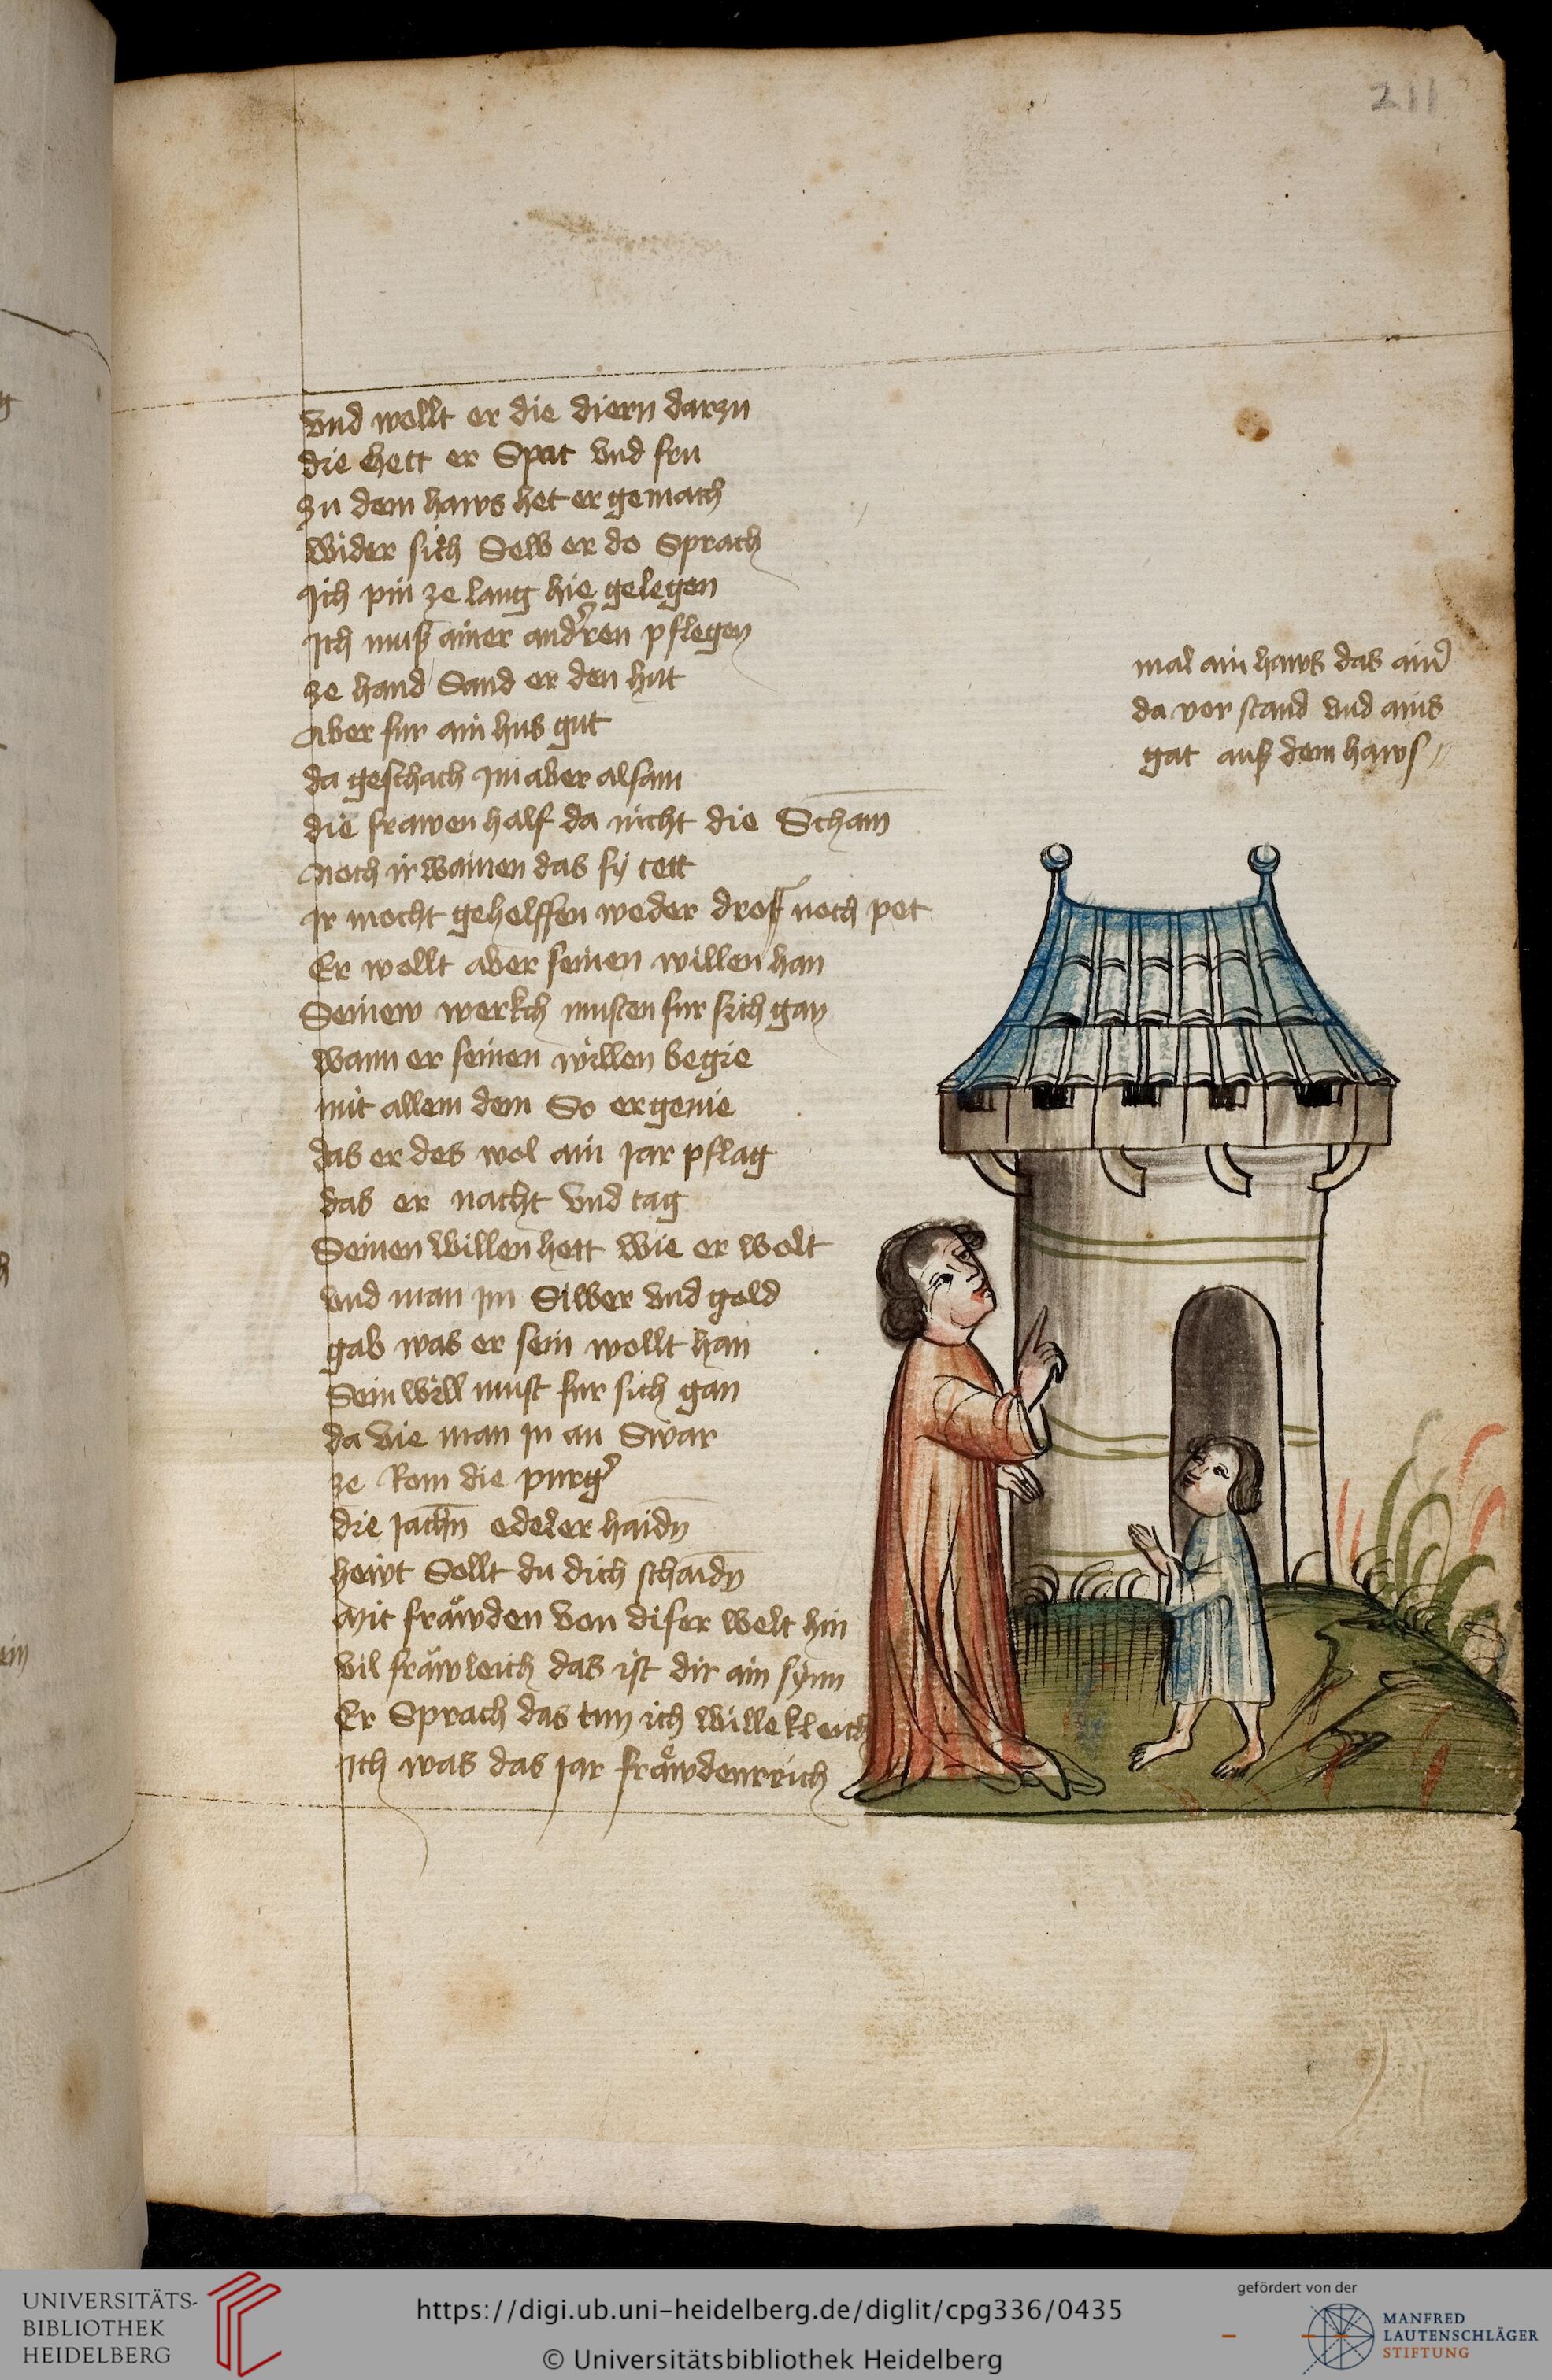 211
vnd wollt er die diern darzu
die hett er Spat vnd fru
zu dem haws het er gemach
wider sich Selb er do Sprach
Ich pin ze lang hie gelegen
Ich muß ainer andren pflegen
ze hand Sand er den hut
Aber fur ain hus gut
da geschach Im aber alsam
die frawen half da nicht die Scham
Noch ir wainen das sy tett
Ir mocht gehelffen weder dro noch pet
Er wollt aber seinen willen han
Seinew werkch musten fur sich gan
wann er seinen willen begie
mit allem dem So er genie
das er des wol ain Jar pflag
das er nacht vnd tag
Seinen willen hett wie er wolt
vnd man Im Silber vnd gold
gab was er sein wollt han
Sein will must fur sich gan
da vie man In an Swar
ze Rom die purg
die Jachn edeler haidn
hewt Sollt du dich schaidn
Mit frawden von diser welt hin
vil frawleich das ist dir ain synn
Er Sprach das tun ich willekleich
Ich was das Jar frawdenreich
mal ain haws das ain
da vor stand vnd ains
gat auß dem haws
UNIVERSITÄTS-
BIBLIOTHEK
HEIDELBERG
https://digi.ub.uni-heidelberg.de/diglit/cpg336/0435
© Universitätsbibliothek Heidelberg
gefördert von der
MANFRED
LAUTENSCHLÄGER
STIFTUNG